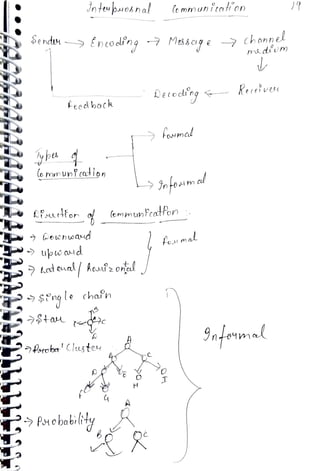 Interpersonal Communication 19
Sender → Encoding → Message → channel
medium
Decoding ← Receiver
Feedback
Formal
Types of
Communication
Informal
Direction of Communication :-
→ Downward
→ upward
Formal
→ Lateral / horizontal
→ Single chain
→ Star
B
C
Informal
→ Cluster
A
C
D E
F G H I
→ Probability
A
B C